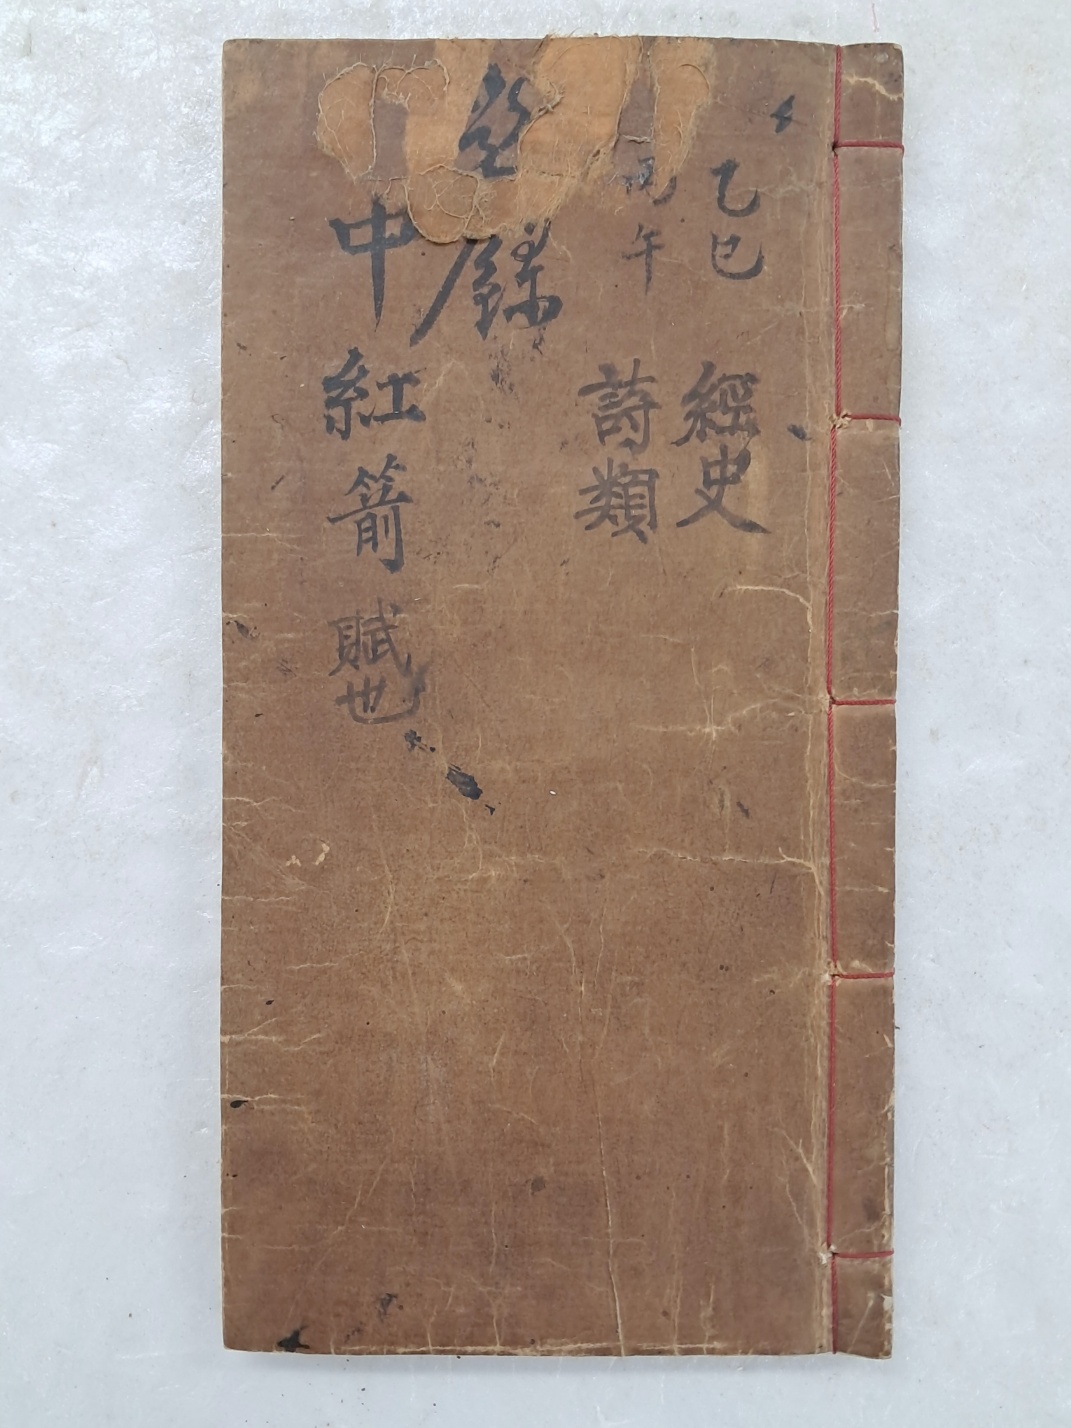 乙巳 經史
丙午 詩類
錄
中紅箭賦也